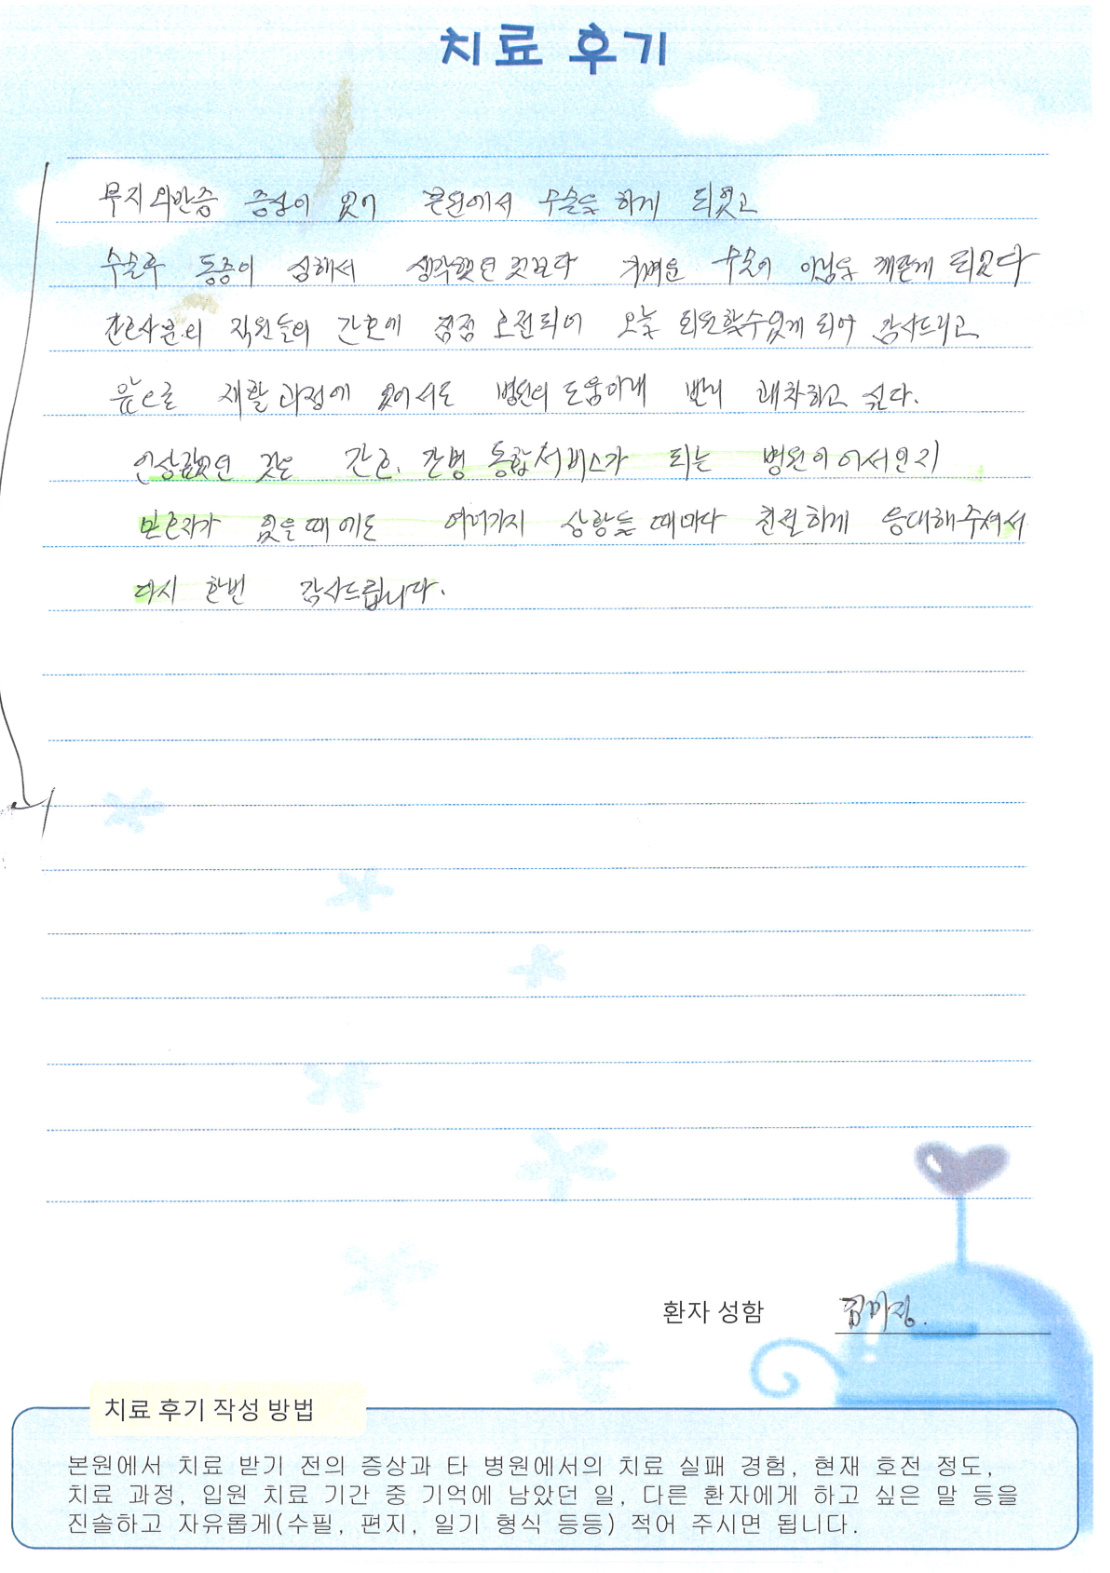 치료 후기
무지외반증 증상이 있어 본원에서 수술을 하게 되었고
수술후 통증이 심해서 생각했던 것보다 가벼운 수술이 아님을 깨닫게 되었다
간호사분의 직원들의 간호에 점점 호전되어 오늘 퇴원할수있게 되어 감사드리고
앞으로 재활과정에 있어서도 병원의 도움아래 빨리 쾌차하고 싶다.
인상깊었던 것은 간호. 간병 통합서비스가 되는 병원이어서인지
보호자가 없을때에도 여러가지 상황들때마다 친절하게 응대해주셔서
다시 한번 감사드립니다.
환자 성함
치료 후기 작성 방법
본원에서 치료 받기 전의 증상과 타 병원에서의 치료 실패 경험, 현재 호전 정도,
치료 과정, 입원 치료 기간 중 기억에 남았던 일, 다른 환자에게 하고 싶은 말 등을
진솔하고 자유롭게(수필, 편지, 일기 형식 등등) 적어 주시면 됩니다.